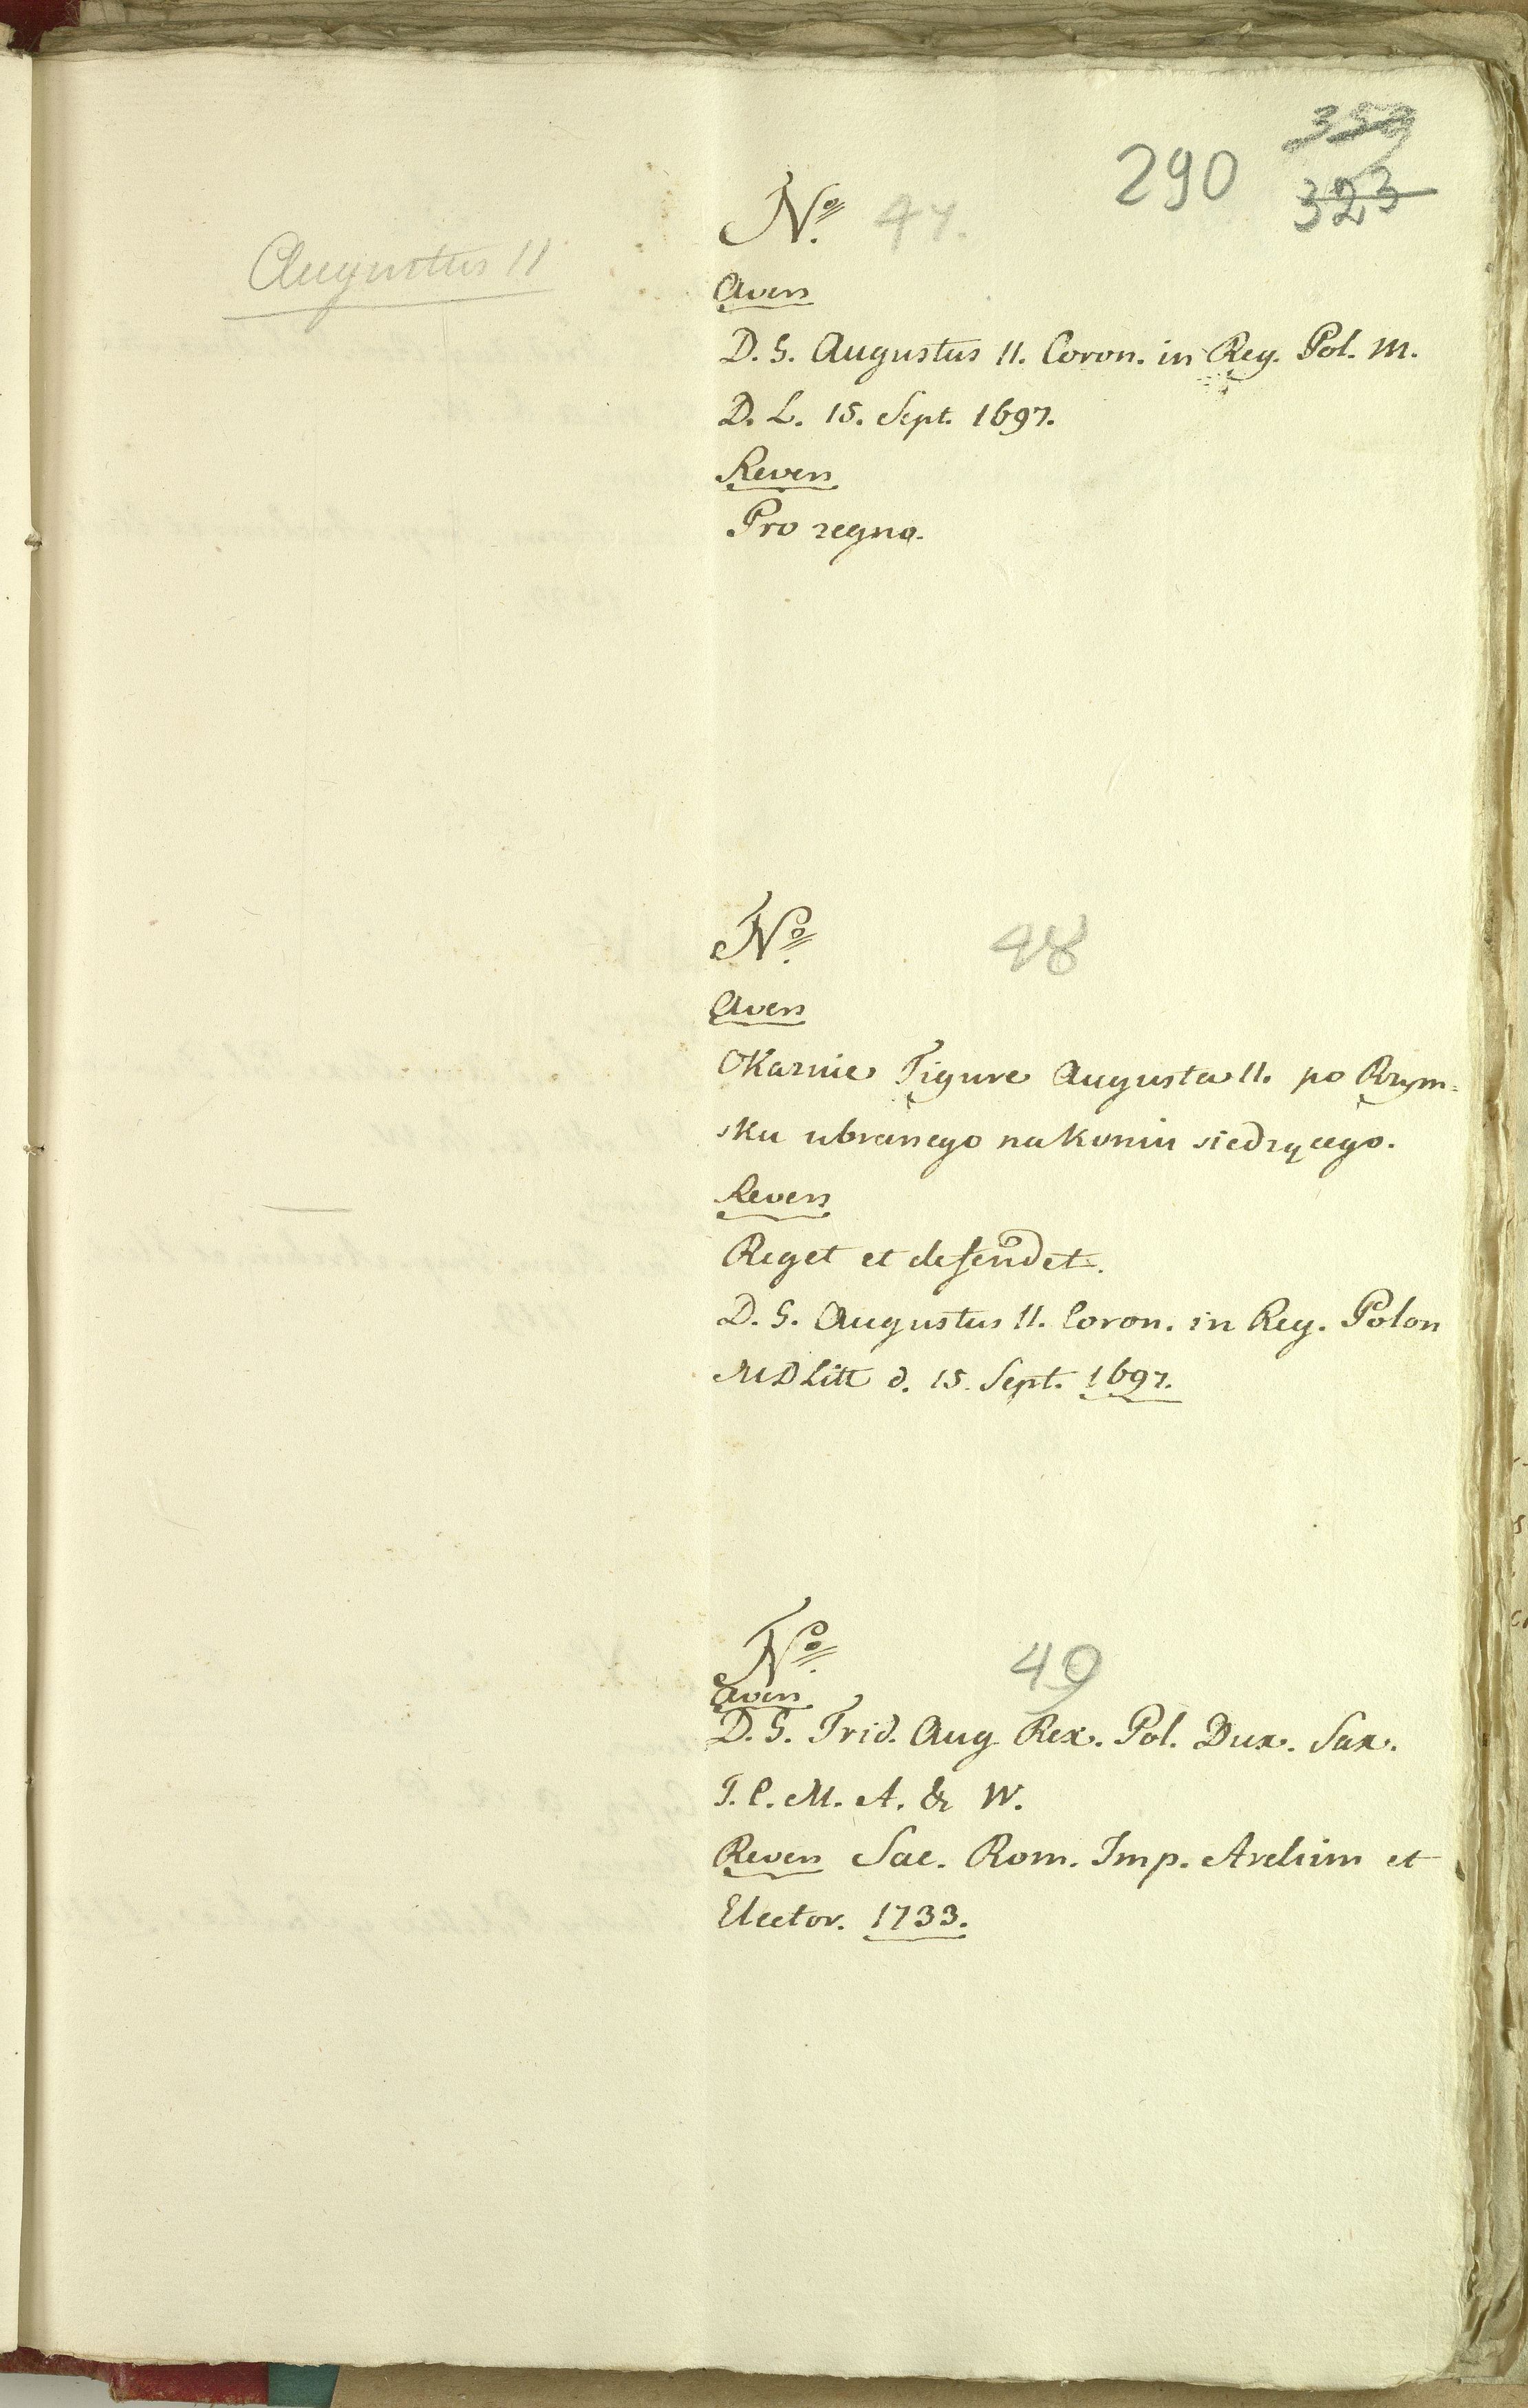 353
290 323
Augustus II
No. 47.
Avers
D. G. Augustus II. Coron. in Reg. Pol. M.
D. L. 15. Sept. 1697.
Revers
Pro regno.
No. 48
Avers
Okazuie Figure Augusta II. po Rzym-
sku ubranego na koniu siedzącego.
Revers
Reget et defendet.
D. G. Augustus II. Coron. in Reg. Polon
MDLitt d. 15. Sept. 1697.
No. 49
Avers
D. G. Frid. Aug Rex. Pol. Dux. Sax.
I. C. M. A. & W.
Revers Sac. Rom. Imp. Archim et
Elector. 1733.